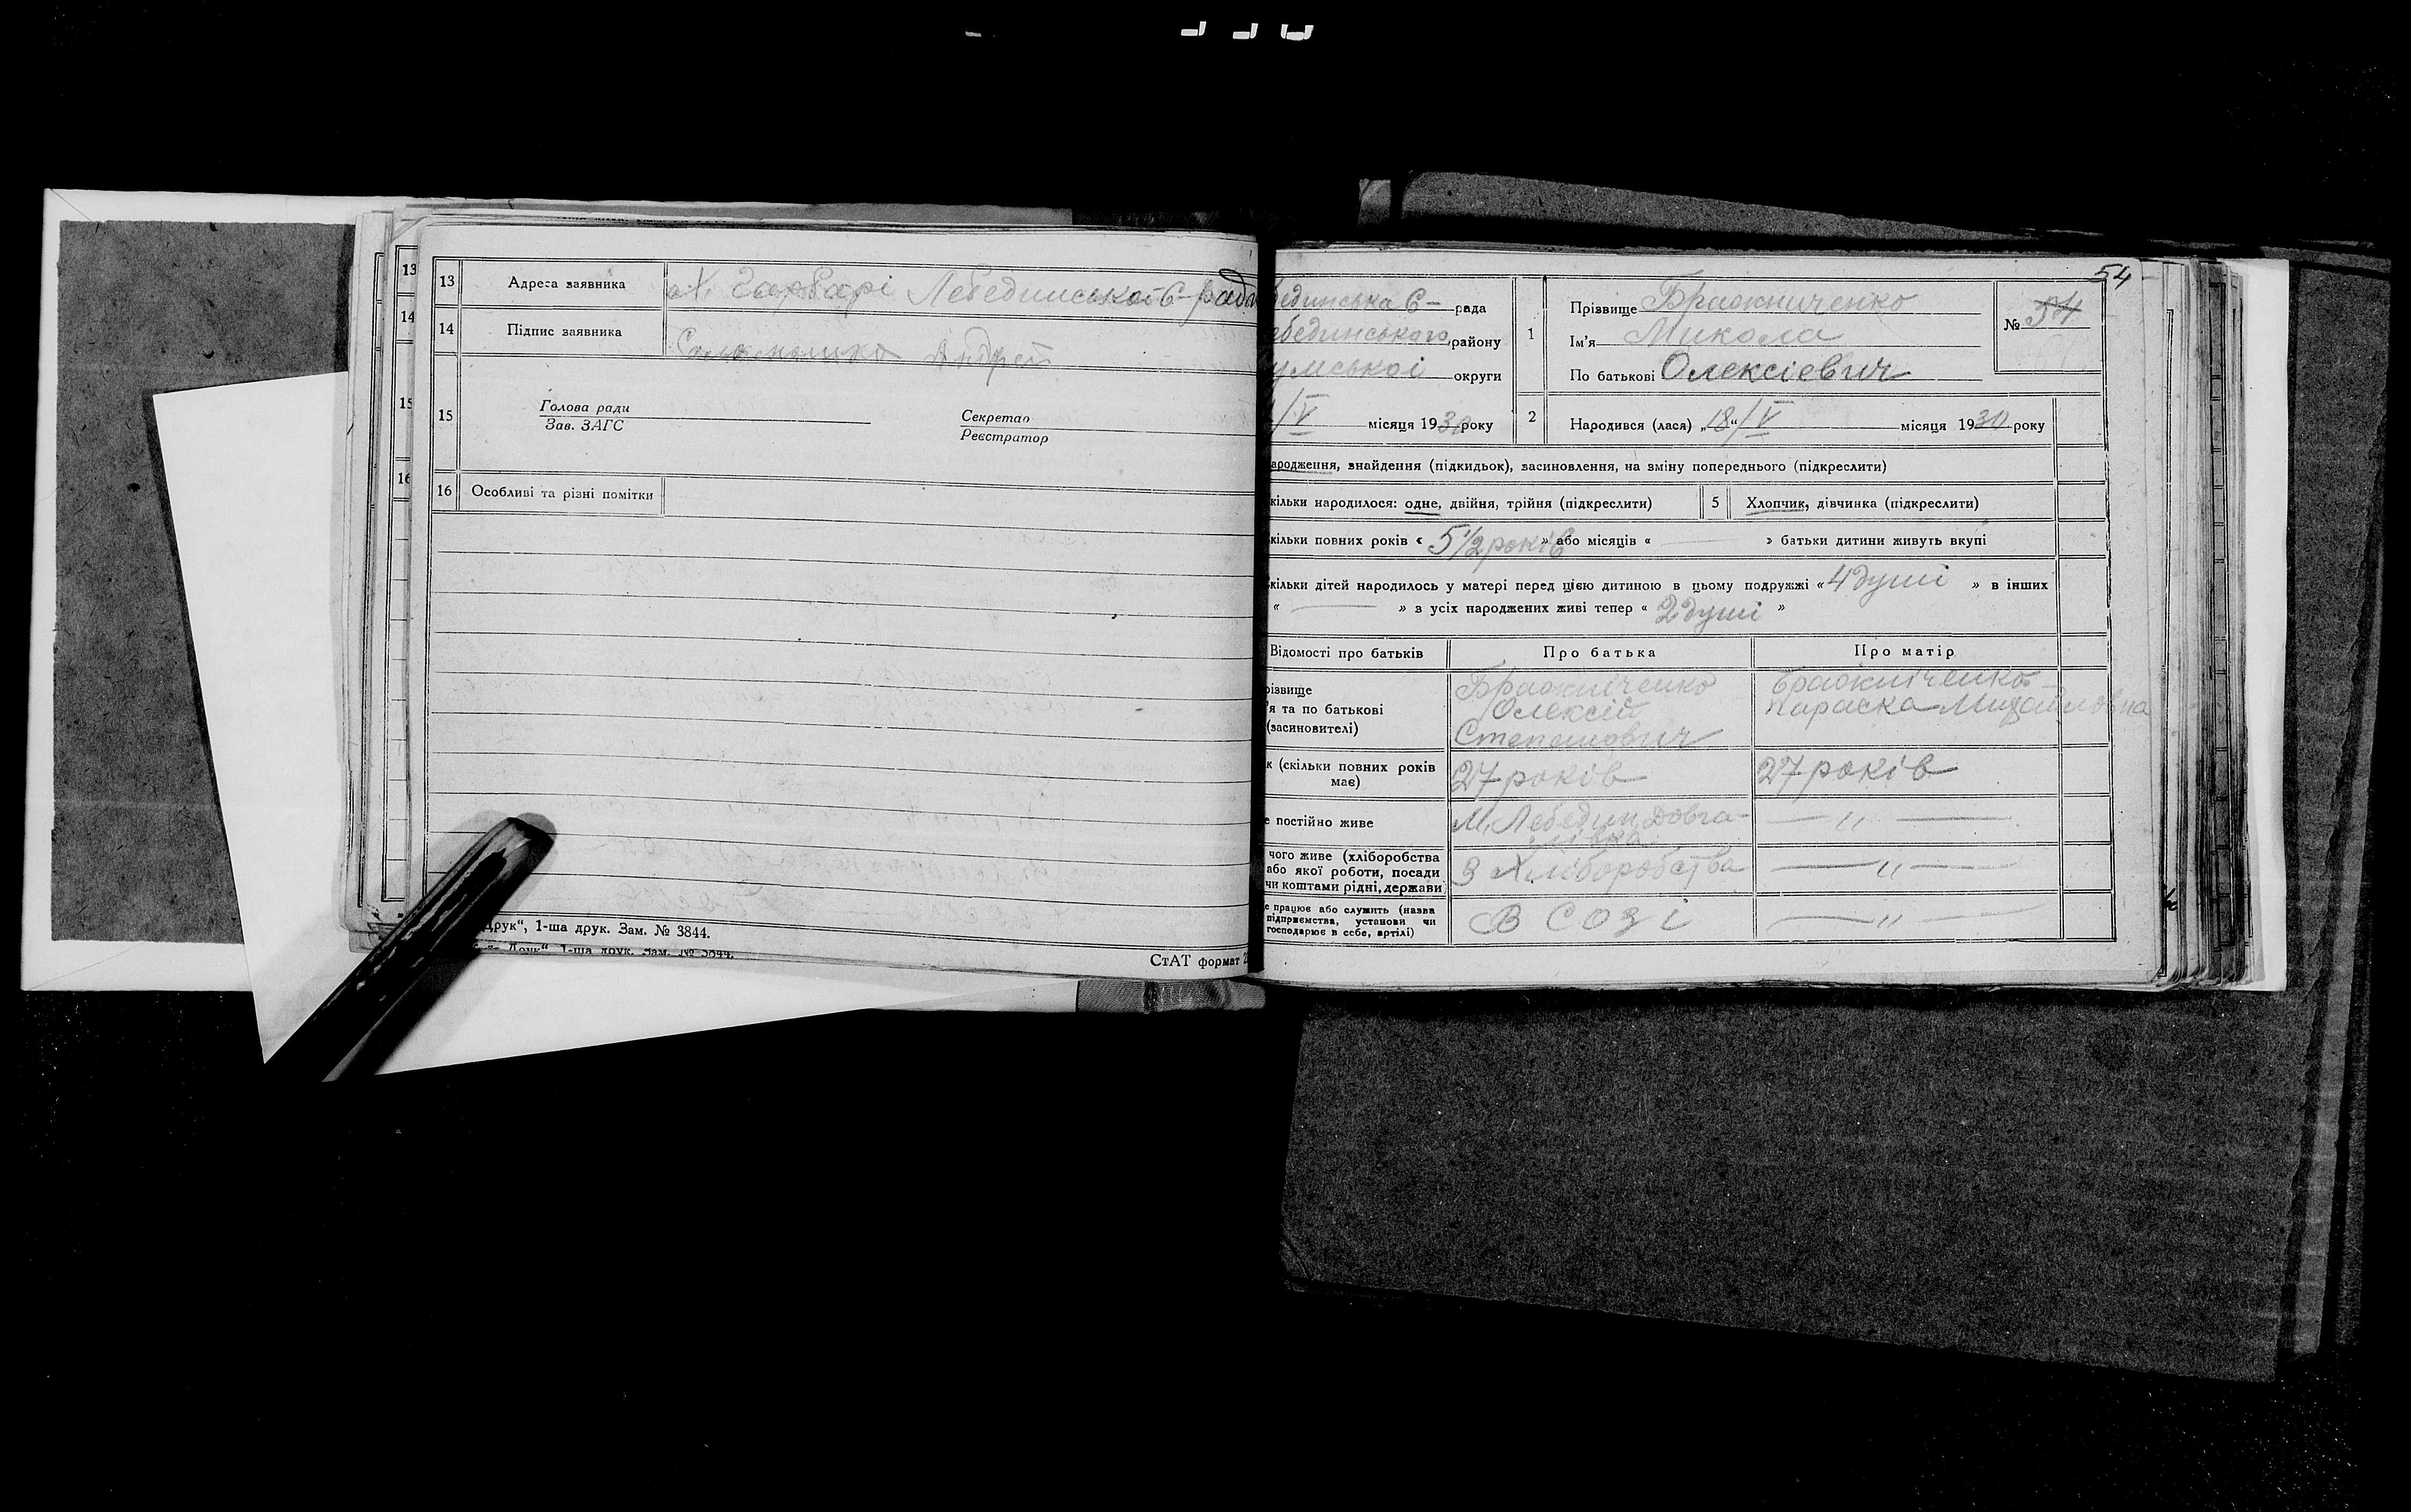 13 Адреса заявника Х. Гарбарі Лебединської С-ради
14 Підпис заявника Андрей
15 Голова ради
Зав. ЗАГС
Секретар
Реєстратор
16 Особливі та різні помітки
Друк“, 1-ша друк. Зам. № 3844.
Друк“ 1-ша друк. Зам. № 3844.
СтАТ формат
13
14
15
16
54
бединська С- рада
ебединського району
умської округи
/V місяця 1930 року
1 Прізвище Бражниченко
Ім'я Микола
По батькові Олексієвич
№ 54
2 Народився (лася) „18“/V місяця 1930 року
ародження, знайдення (підкидьок), засиновлення, на зміну попереднього (підкреслити)
кільки народилося: одне, двійня, трійня (підкреслити) 5 Хлопчик, дівчинка (підкреслити)
кільки повних років « 5 1/2 років » або місяців « — » батьки дитини живуть вкупі
кільки дітей народилось у матері перед цією дитиною в цьому подружжі « 4 душі » в інших
« — » з усіх народжених живі тепер « 2 душі »
Відомості про батьків Про батька Про матір
різвище
'я та по батькові
(засиновителі)
Бражніченко
Олексій
Степанович
Бражніченко
Параска Михайловна
к (скільки повних років
має)
27 років 27 років
е постійно живе М. Лебедин, Довга- — „ —
чого живе (хліборобства
або якої роботи, посади
чи коштами рідні, держави)
З Хліборобства — „ —
е працює або служить (назва
підприємства, установи чи
господарює в себе, артілі)
В СОЗі — „ —